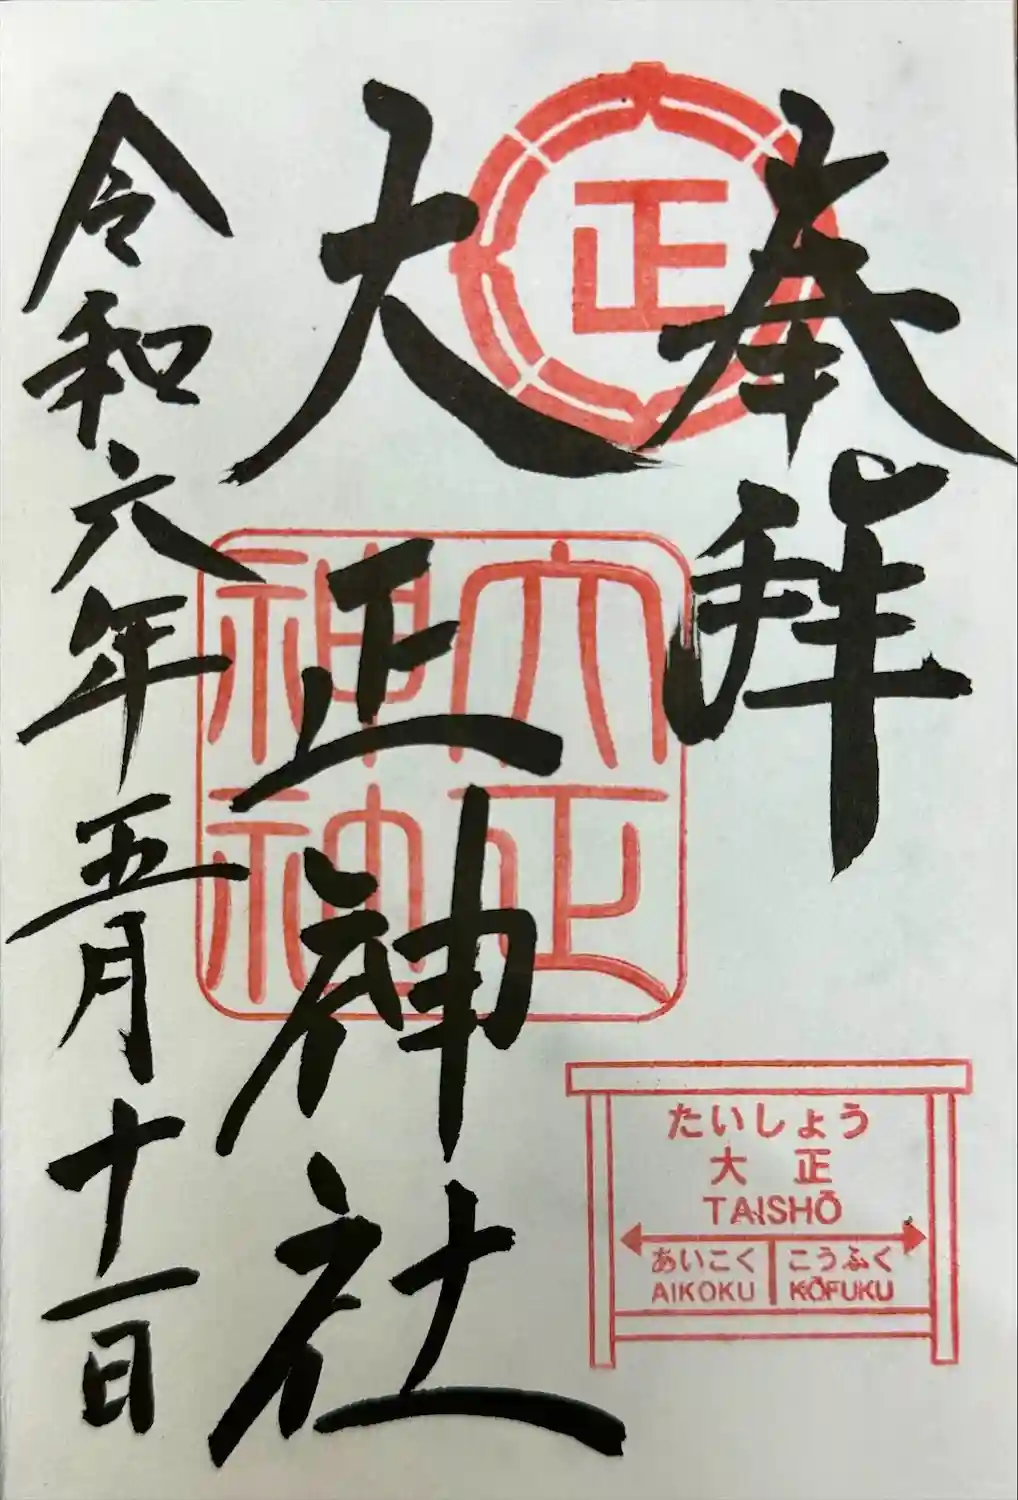 奉拝
正
大正神社
大正
神社
令和六年五月十一日
たいしょう
大正
TAISHŌ
あいこく こうふく
AIKOKU KŌFUKU